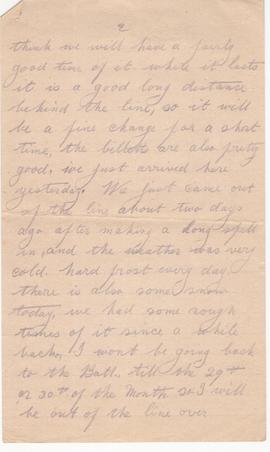 2
think we will have a fairly
good time of it while it lasts
it is a good long distance
behind the line, so it will
be a fine change for a short
time, the billets are also pretty
good, we just arrived here
yesterday. We just came out
of the line about two days
ago after making a long spell
in, and the weather was very
cold. hard frost every day,
there is also some snow
today, we had some rough
times of it since a while
back, I wont be going back
to the Batt. till the 29th
or 30th of the Month so I will
be out of the line over